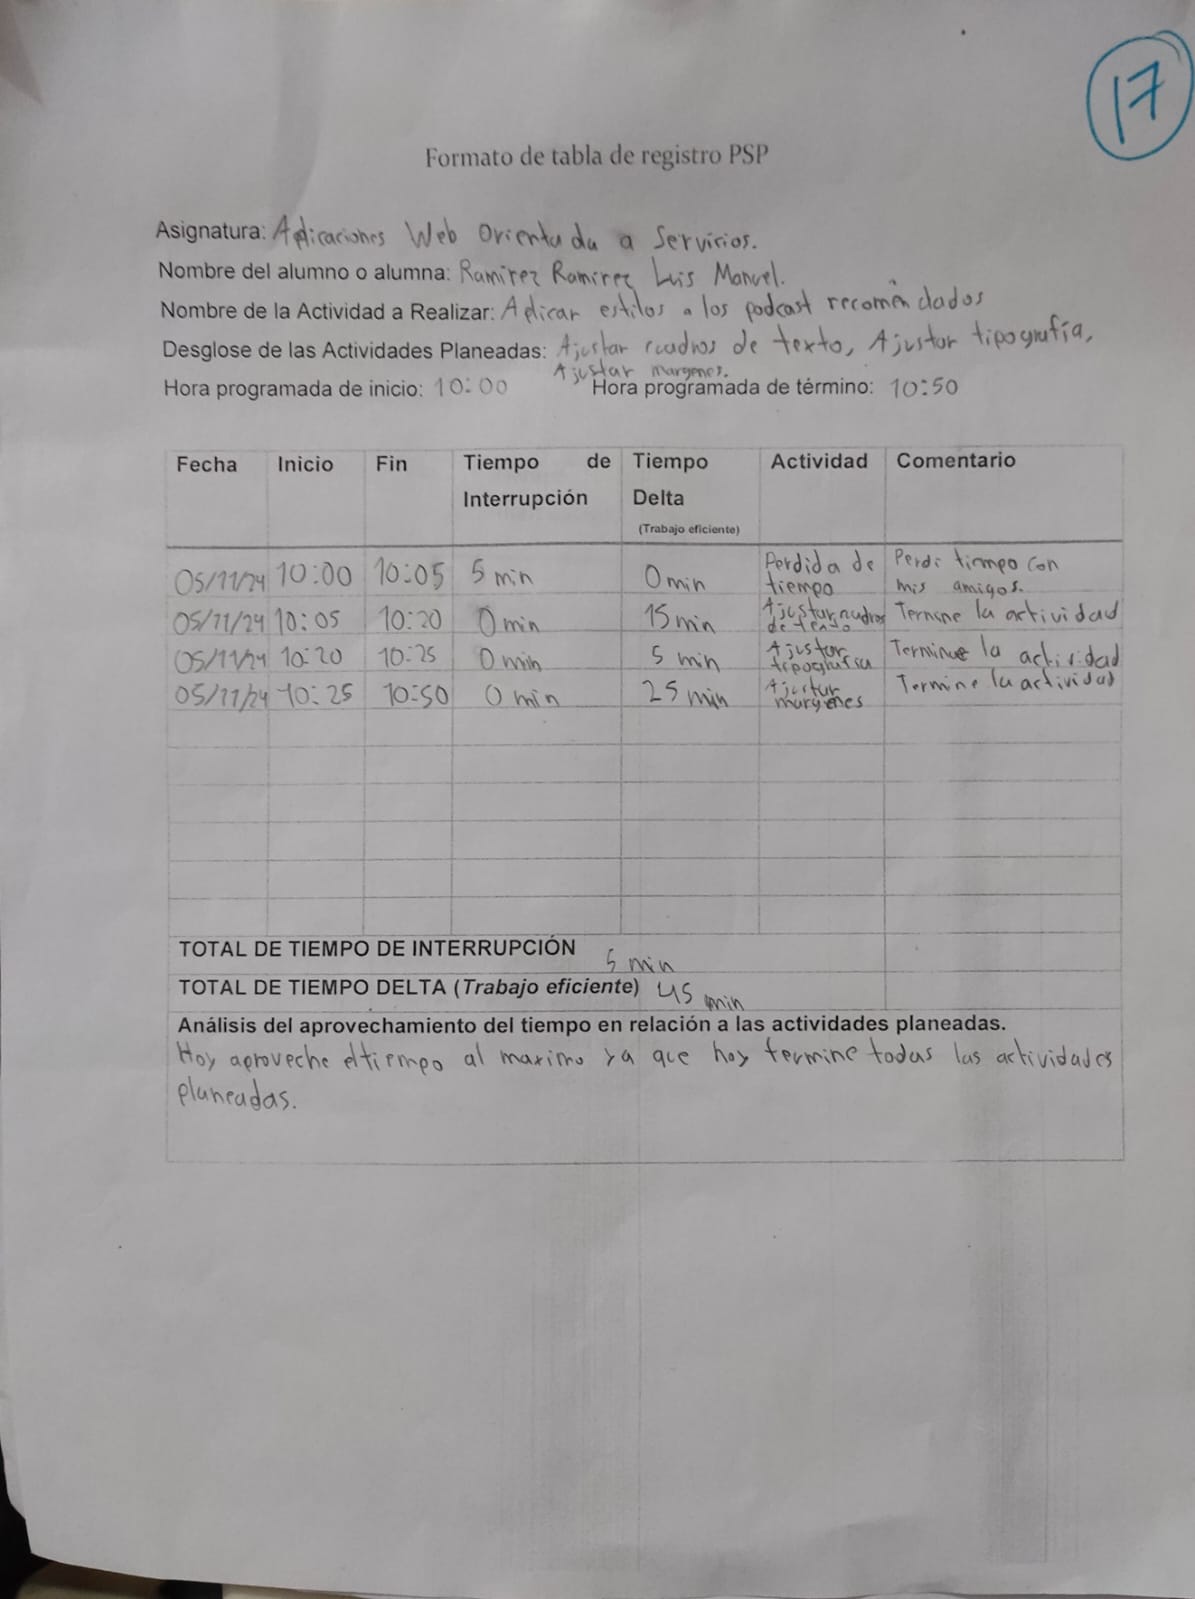 17
Formato de tabla de registro PSP
Asignatura: Aplicaciones Web Orientada a Servicios.
Nombre del alumno o alumna: Ramirez Ramirez Luis Manuel.
Nombre de la Actividad a Realizar: Aplicar estilos a los podcast recomendados
Desglose de las Actividades Planeadas: Ajustar cuadros de texto, Ajustar tipografía,
Ajustar margenes.
Hora programada de inicio: 10:00 Hora programada de término: 10:50
Fecha Inicio Fin Tiempo de Interrupción Tiempo Delta (Trabajo eficiente) Actividad Comentario
05/11/24 10:00 10:05 5 min 0 min Perdida de tiempo Perdi tiempo con mis amigos.
05/11/24 10:05 10:20 0 min 15 min Ajustar cuadros de texto Termine la actividad
05/11/24 10:20 10:25 0 min 5 min Ajustar tipografia Termine la actividad
05/11/24 10:25 10:50 0 min 25 min Ajustar margenes Termine la actividad
TOTAL DE TIEMPO DE INTERRUPCIÓN 5 min
TOTAL DE TIEMPO DELTA (Trabajo eficiente) 45 min
Análisis del aprovechamiento del tiempo en relación a las actividades planeadas.
Hoy aproveche el tiempo al maximo ya que hoy termine todas las actividades
planeadas.